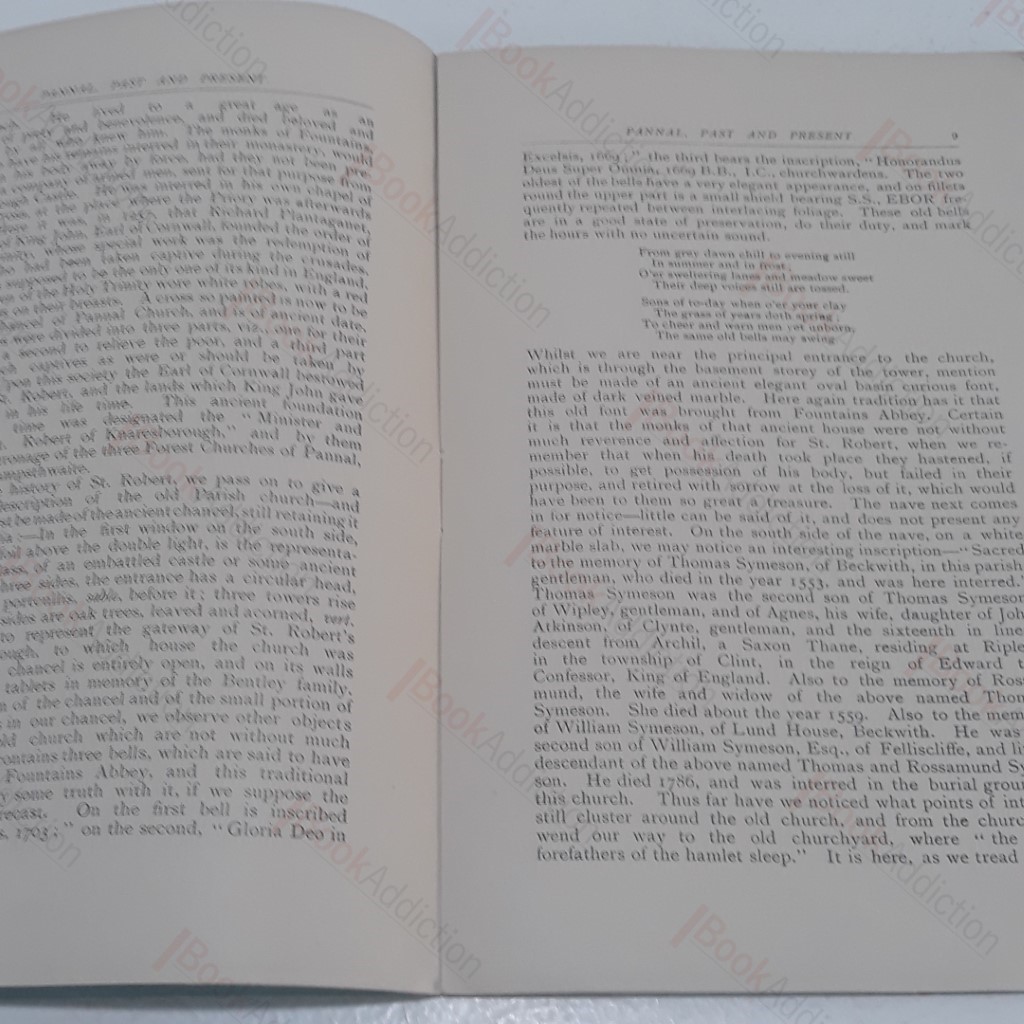 PANNAL, PAST AND PRESENT
He lived to a great age as an
of piety and benevolence, and died beloved and
by all who knew him. The monks of Fountains,
have his remains interred in their monastery, would
his body away by force, had they not been
company of armed men, sent for that purpose from
Castle. He was interred in his own chapel of
at the place where the Priory was afterwards
it was, in that Richard Plantagenet,
of King John, Earl of Cornwall, founded the order of
whose special work was the redemption of
had been taken captive during the crusades.
supposed to be the only one of its kind in England,
of the Holy Trinity wore white robes, with a red
on their breasts. A cross so painted is now to be
chancel of Pannal Church, and is of ancient date.
were divided into three parts, viz., one for their
a second to relieve the poor, and a third part
captives as were or should be taken by
upon this society the Earl of Cornwall bestowed
Robert, and the lands which King John gave
in his life time. This ancient foundation
time was designated the "Minister and
Robert of Knaresborough," and by them
of the three Forest Churches of Pannal,
history of St. Robert, we pass on to give a
description of the old Parish church—and
be made of the ancient chancel, still retaining it
:—In the first window on the south side,
above the double light, is the representa-
of an embattled castle or some ancient
three sides, the entrance has a circular head,
portcullis, sable, before it; three towers rise
sides are oak trees, leaved and acorned, vert.
to represent the gateway of St. Robert's
to which house the church was
chancel is entirely open, and on its walls
tablets in memory of the Bentley family.
of the chancel and of the small portion of
in our chancel, we observe other objects
old church which are not without much
contains three bells, which are said to have
Fountains Abbey, and this traditional
some truth with it, if we suppose the
recast. On the first bell is inscribed
1703;" on the second, "Gloria Deo in
PANNAL, PAST AND PRESENT 9
Excelsis, 1669;" the third bears the inscription, "Honorandus
Deus Super Omnia, 1669 B.B., I.C., churchwardens. The two
oldest of the bells have a very elegant appearance, and on fillets
round the upper part is a small shield bearing S.S., EBOR fre-
quently repeated between interlacing foliage. These old bells
are in a good state of preservation, do their duty, and mark
the hours with no uncertain sound.
From grey dawn chill to evening still
In summer and in frost,
O'er sweltering lanes and meadow sweet
Their deep voices still are tossed.
Sons of to-day when o'er your clay
The grass of years doth spring;
To cheer and warn men yet unborn,
The same old bells may swing
Whilst we are near the principal entrance to the church,
which is through the basement storey of the tower, mention
must be made of an ancient elegant oval basin curious font,
made of dark veined marble. Here again tradition has it that
this old font was brought from Fountains Abbey. Certain
it is that the monks of that ancient house were not without
much reverence and affection for St. Robert, when we re-
member that when his death took place they hastened, if
possible, to get possession of his body, but failed in their
purpose, and retired with sorrow at the loss of it, which would
have been to them so great a treasure. The nave next comes
in for notice—little can be said of it, and does not present any
feature of interest. On the south side of the nave, on a white
marble slab, we may notice an interesting inscription—"Sacred
to the memory of Thomas Symeson, of Beckwith, in this parish
gentleman, who died in the year 1553, and was here interred.
Thomas Symeson was the second son of Thomas Symeson
of Wipley, gentleman, and of Agnes, his wife, daughter of Joh
Atkinson, of Clynte, gentleman, and the sixteenth in line
descent from Archil, a Saxon Thane, residing at Riple
in the township of Clint, in the reign of Edward t
Confessor, King of England. Also to the memory of Ros
mund, the wife and widow of the above named Thom
Symeson. She died about the year 1559. Also to the mem
of William Symeson, of Lund House, Beckwith. He was
second son of William Symeson, Esq., of Felliscliffe, and li
descendant of the above named Thomas and Rossamund Sy
son. He died 1786, and was interred in the burial grou
this church. Thus far have we noticed what points of int
still cluster around the old church, and from the churc
wend our way to the old churchyard, where "the
forefathers of the hamlet sleep." It is here, as we tread